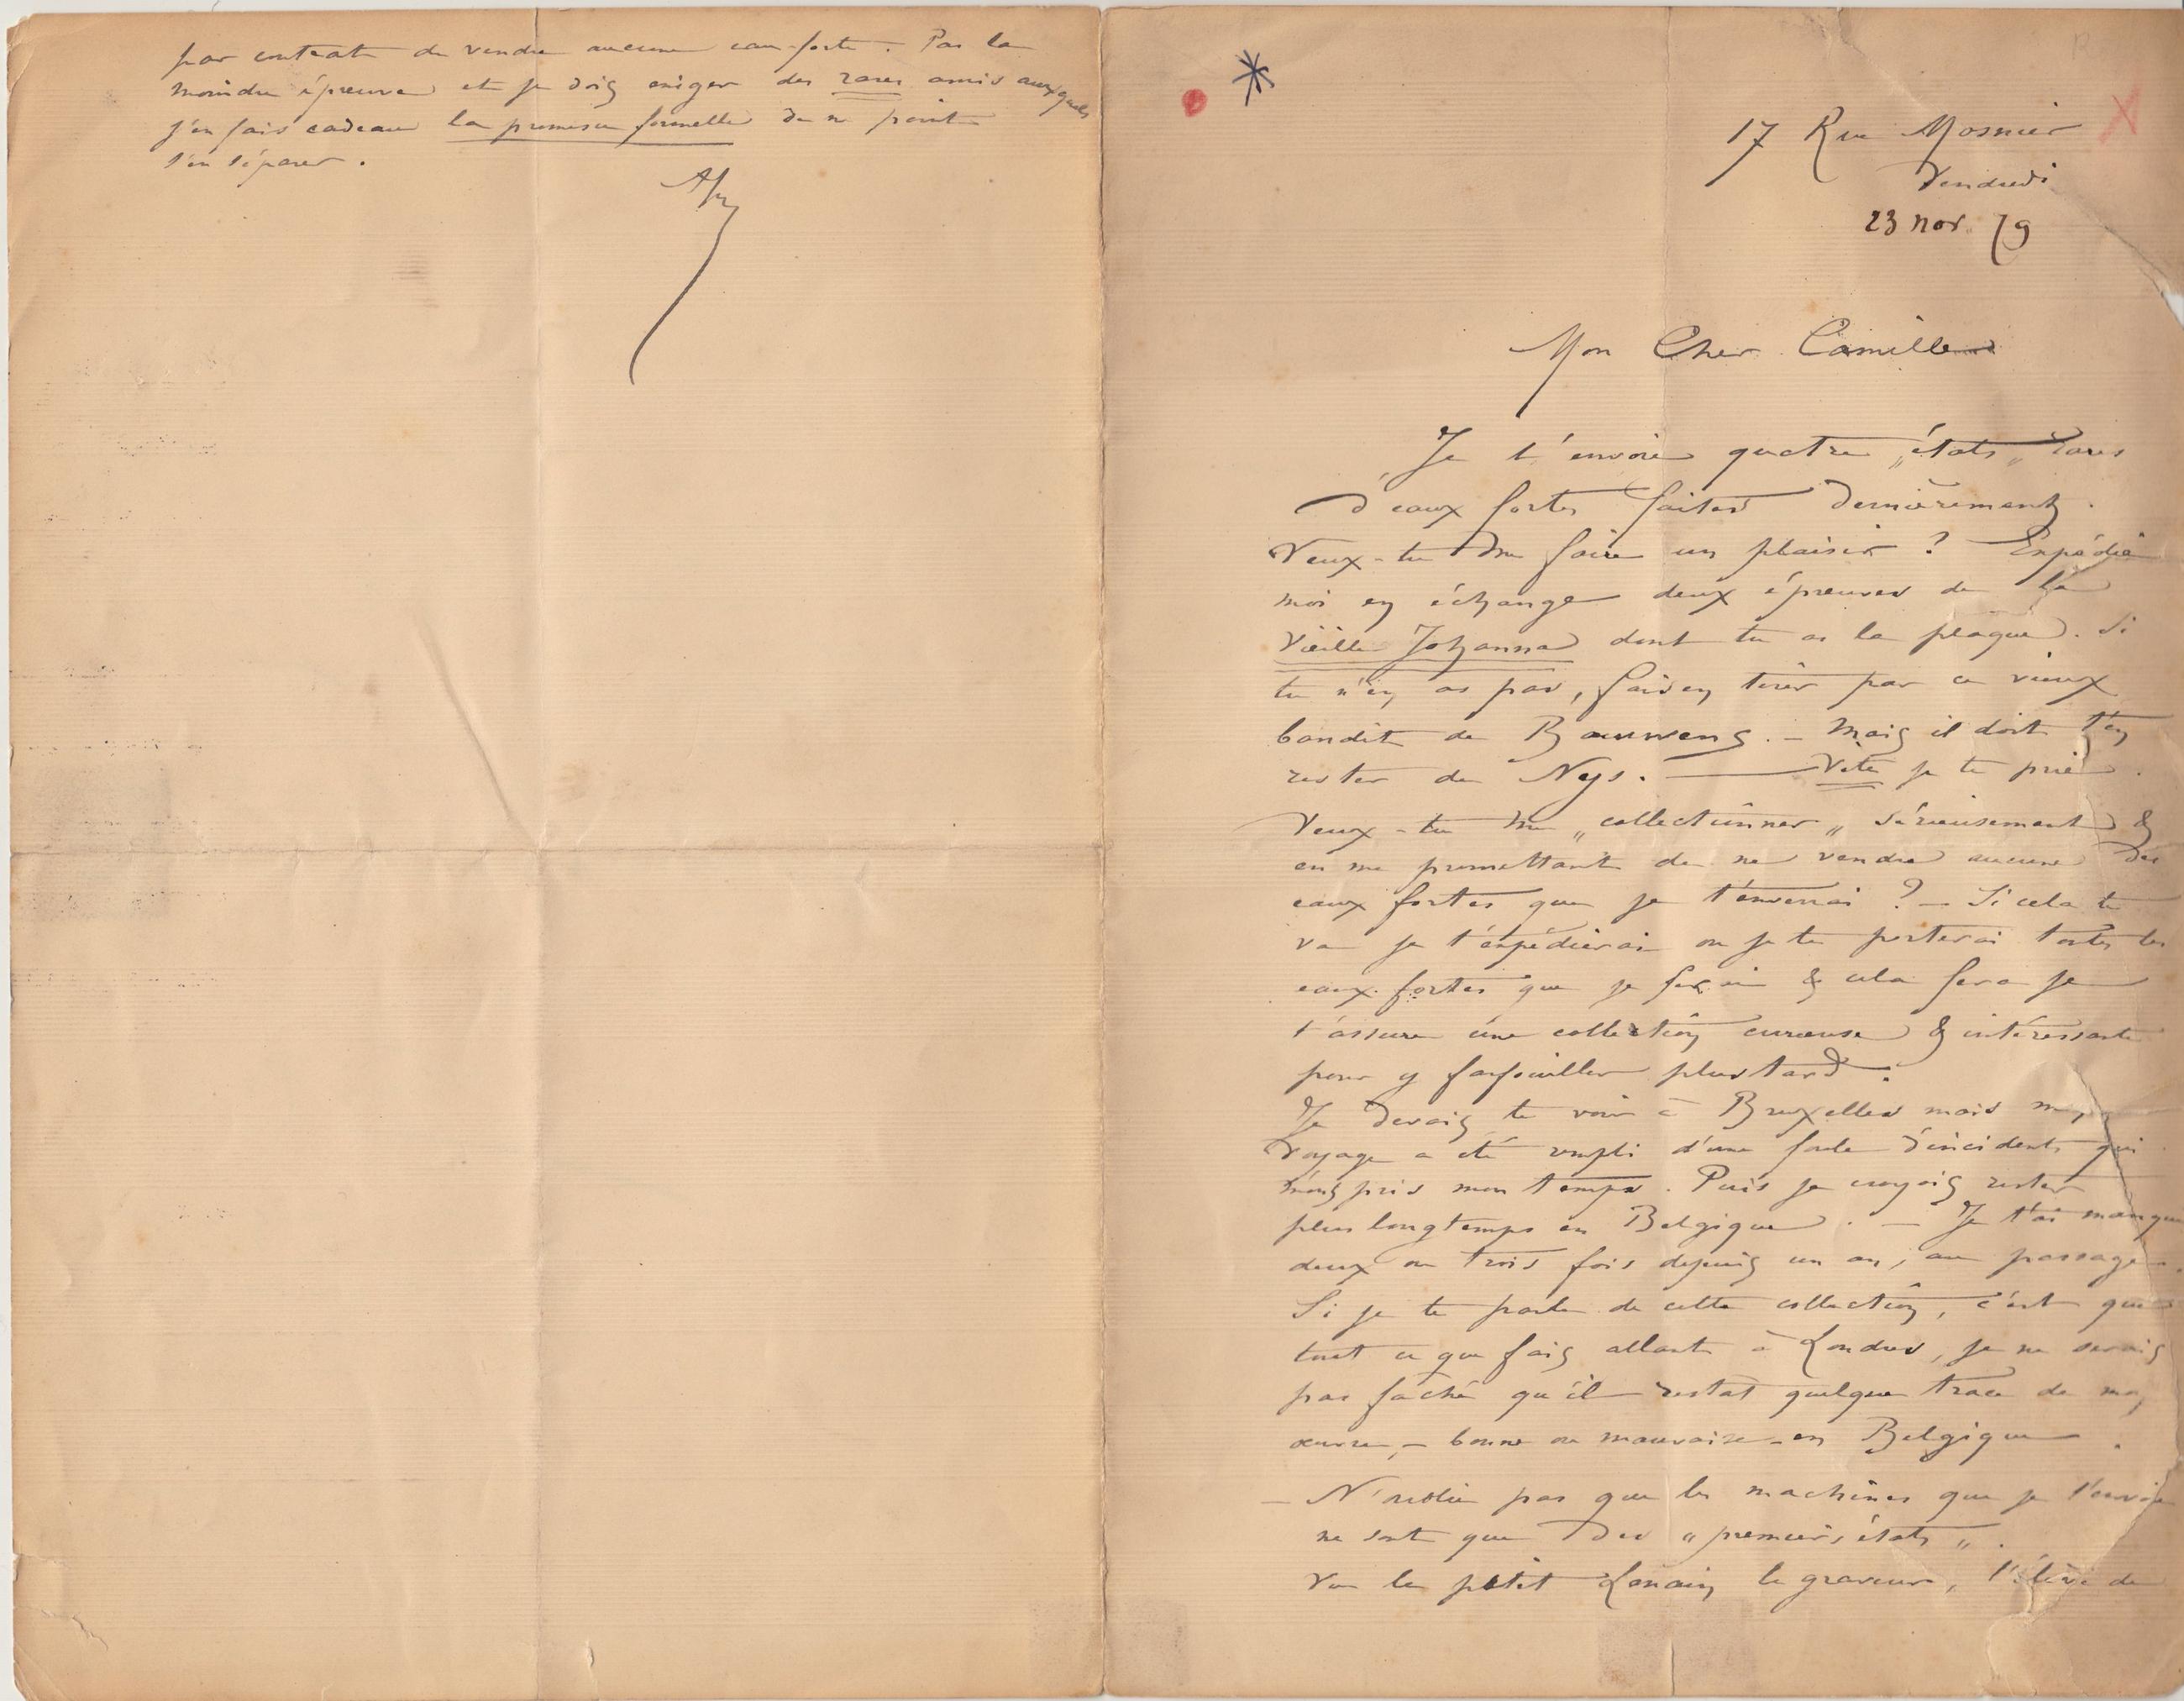 par contrat de vendre aucune eau-forte. Pas la
moindre épreuve et je dois exiger des rares amis auxquels
j'en fais cadeau la promesse formelle de ne point
s'en séparer.
17 Rue Mosnier
Vendredi
23 nov. 79
Mon Cher Camille
Je t'envoie quatre „états„ rares
d'eaux fortes faites dernièrement.
Veux-tu me faire un plaisir ? Expédie
moi en échange deux épreuves de la
Vieille Johanna dont tu as la plaque. Si
tu n'en as pas, fais en tirer par ce vieux
bandit de Bauwens. – Mais il doit t'en
rester de Nys. — Vite je te prie.
Veux-tu me „collectionner„ sérieusement &
en me promettant de ne vendre aucune des
eaux fortes que je t'enverrai ? – Si cela te
va je t'expédierai ou je te porterai toutes les
eaux-fortes que je ferai & cela fera je
t'assure une collection curieuse & intéressante
pour y farfouiller plus tard.
Je devais te voir à Bruxelles mais mon
voyage a été rempli d'une foule d'incidents qui
m'ont pris mon temps. Puis je croyais rester
plus longtemps en Belgique. – Je t'ai manqué
deux ou trois fois depuis un an, au passage.
Si je te parle de cette collection, c'est que
tout ce que fais allant à Londres, je ne serais
pas fâché qu'il restât quelque trace de mon
œuvre, – bonne ou mauvaise – en Belgique.
– N'oublie pas que les machines que je t'envoie
ne sont que des „premiers états„.
Vu le petit Lenain le graveur, l'élève de